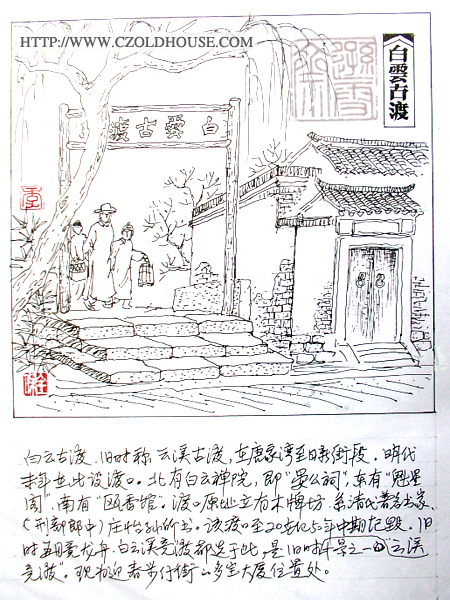 HTTP://WWW.CZOLDHOUSE.COM
白雲古渡
渡古雲白
白云古渡,旧时称云溪古渡,在唐家湾至县街段。明代
末年在此设渡口。北有白云禅院,即“晏公祠”,东有“魁星
阁”,南有“鸥香馆”。渡口原址立有木牌坊,系清代著名书家、
(刑部郎中)庄怡孙所书。该渡口至20世纪50年中期圮毁。旧
时五月赛龙舟,白云竞渡都在于此,是旧时十景之一的“云溪
竞渡”。现为迎春步行街口多宝大厦位置处。